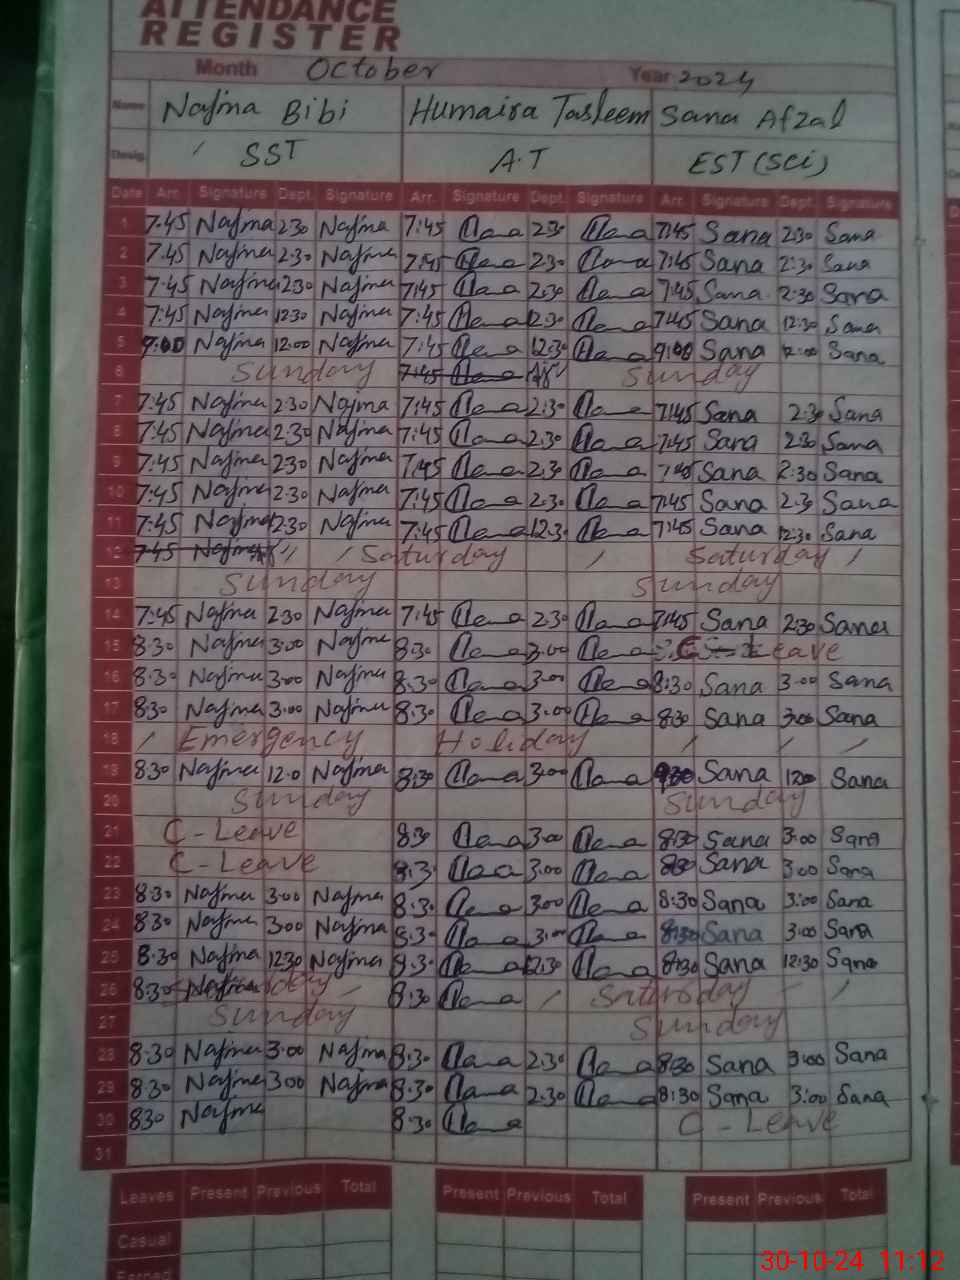 ATTENDANCE
REGISTER
Month October Year 2024
Name Najma Bibi Humaira Tasleem Sana Afzal
Desig. SST A.T EST (Sci)
Date Arr. Signature Dept. Signature Arr. Signature Dept. Signature Arr. Signature Dept. Signature
1 7:45 Najma 2:30 Najma 7:45 2:30 7:45 Sana 2:30 Sana
2 7:45 Najma 2:30 Najma 7:45 2:30 7:45 Sana 2:30 Sana
3 7:45 Najma 2:30 Najma 7:45 2:30 7:45 Sana 2:30 Sana
4 7:45 Najma 12:30 Najma 7:45 12:30 7:45 Sana 12:30 Sana
5 9:00 Najma 12:00 Najma 7:45 12:30 9:00 Sana 12:00 Sana
6 Sunday 7:45 Sunday
7 7:45 Najma 2:30 Najma 7:45 2:30 7:45 Sana 2:30 Sana
8 7:45 Najma 2:30 Najma 7:45 2:30 7:45 Sana 2:30 Sana
9 7:45 Najma 2:30 Najma 7:45 2:30 7:45 Sana 2:30 Sana
10 7:45 Najma 2:30 Najma 7:45 2:30 7:45 Sana 2:30 Sana
11 7:45 Najma 12:30 Najma 7:45 12:30 7:45 Sana 12:30 Sana
12 7:45 Najma Saturday Saturday
13 Sunday Sunday
14 7:45 Najma 2:30 Najma 7:45 2:30 7:45 Sana 2:30 Sana
15 8:30 Najma 3:00 Najma 8:30 3:00 Leave
16 8:30 Najma 3:00 Najma 8:30 3:00 8:30 Sana 3:00 Sana
17 8:30 Najma 3:00 Najma 8:30 3:00 8:30 Sana 3:00 Sana
18 Emergency Holiday
19 8:30 Najma 12:0 Najma 8:30 3:00 9:30 Sana 12:00 Sana
20 Sunday Sunday
21 C - Leave 8:30 3:00 8:30 Sana 3:00 Sana
22 C - Leave 8:30 3:00 8:30 Sana 3:00 Sana
23 8:30 Najma 3:00 Najma 8:30 3:00 8:30 Sana 3:00 Sana
24 8:30 Najma 3:00 Najma 8:30 3:00 8:30 Sana 3:00 Sana
25 8:30 Najma 12:30 Najma 8:30 12:30 8:30 Sana 12:30 Sana
26 8:30 8:30 Saturday
27 Sunday Sunday
28 8:30 Najma 3:00 Najma 8:30 2:30 8:30 Sana 3:00 Sana
29 8:30 Najma 3:00 Najma 8:30 2:30 8:30 Sana 3:00 Sana
30 8:30 Najma 8:30 C - Leave
31
Leaves Present Previous Total Present Previous Total Present Previous Total
Casual
30-10-24 11:12